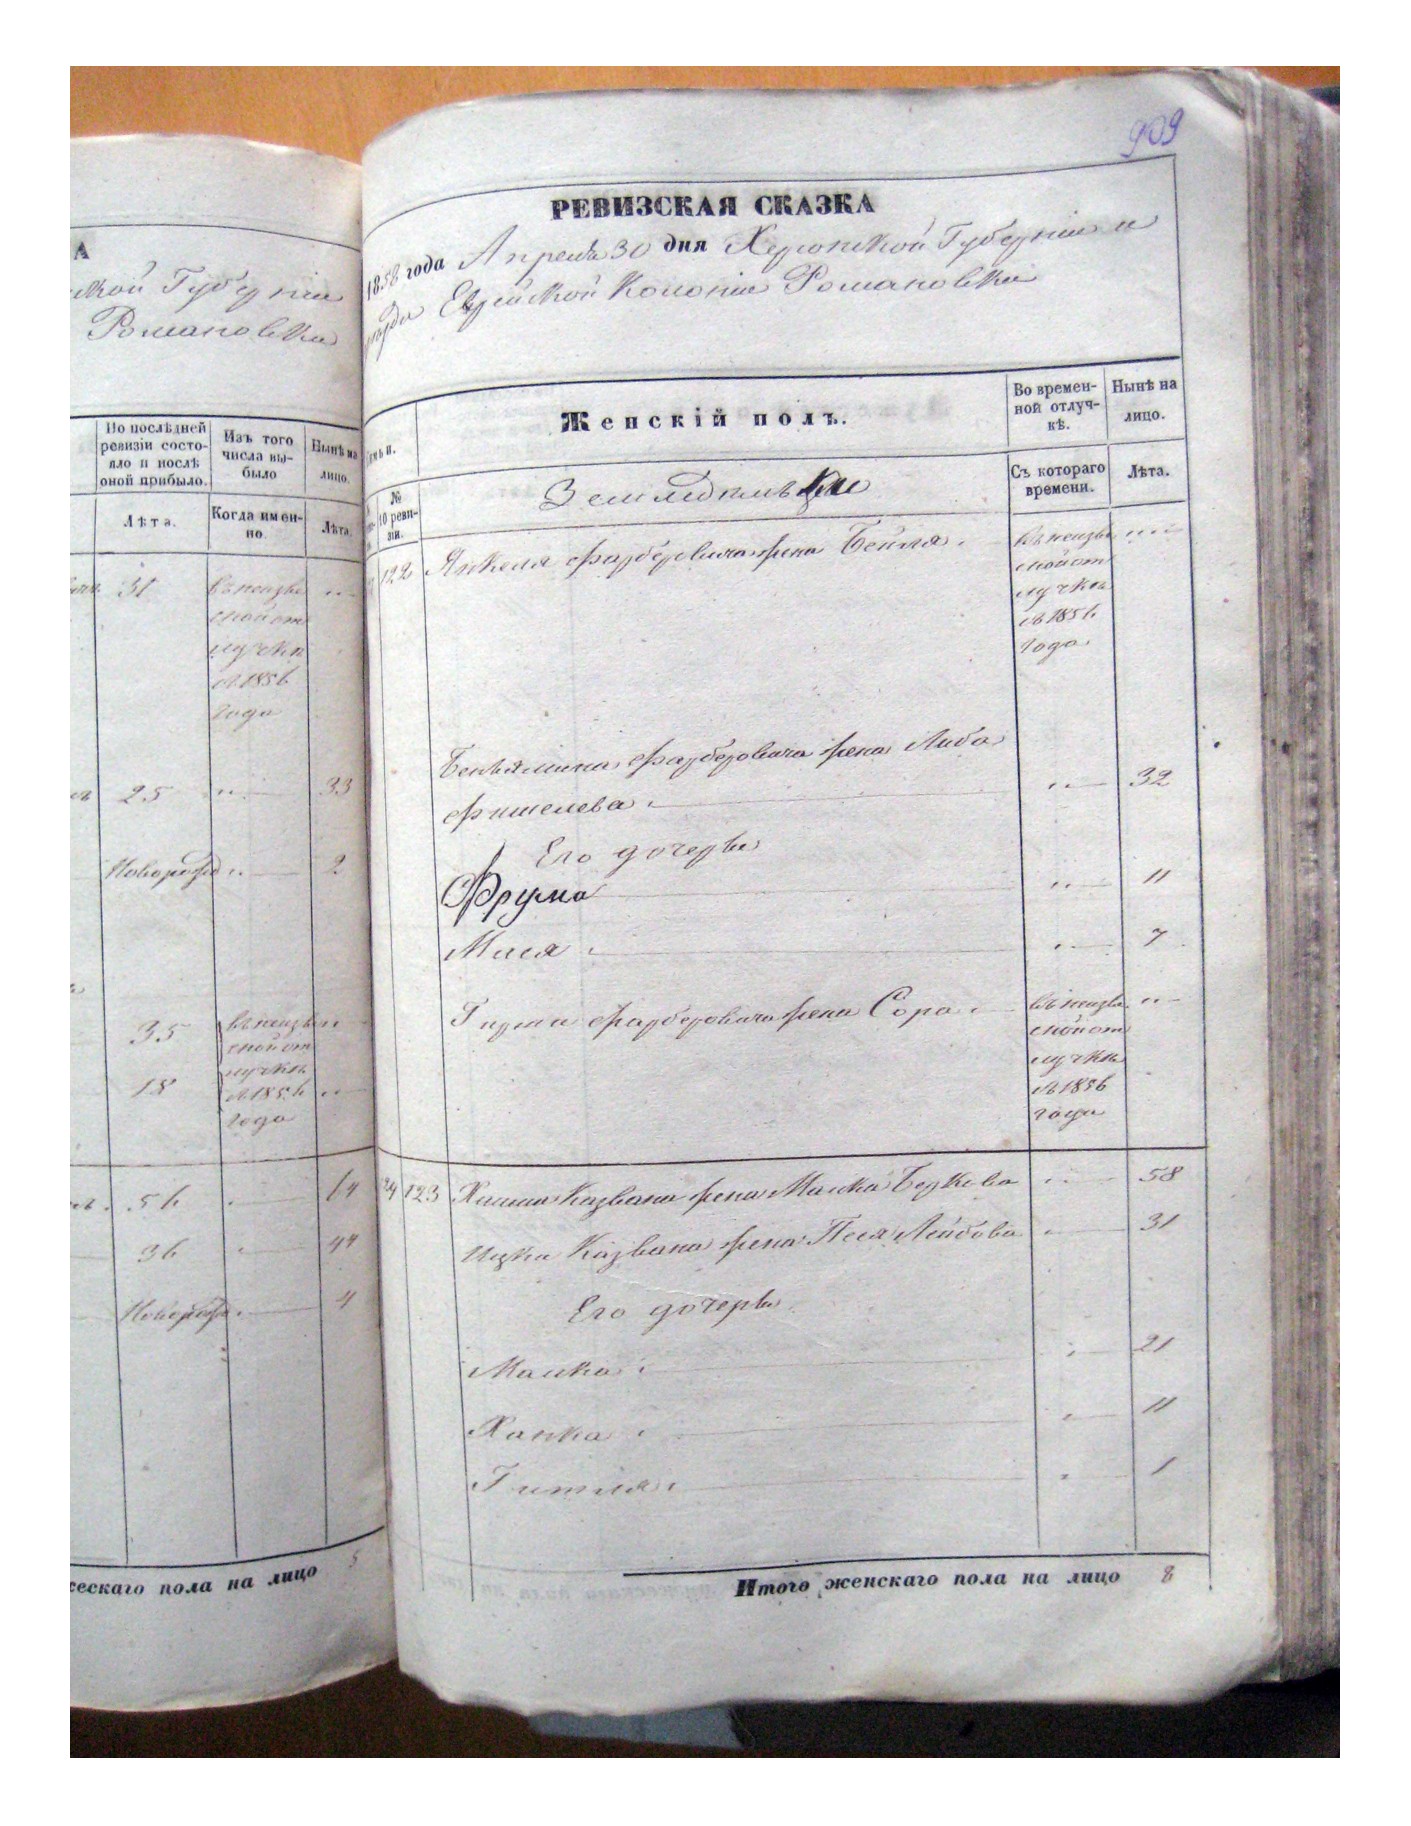 А
ской Губерніи
Романовки
По послѣдней
ревизіи состо-
яло и послѣ
оной прибыло.
Изъ того
числа вы-
было
Нынѣ на
лицо.
Лѣта.
Когда имен-
но.
Лѣта.
31
въ неизвѣ
стной от
лучкѣ
съ 1856
года
25
33
Новорожд
2
35
въ неизвѣ
стной от
18
лучкѣ
съ 1856
года
56
64
36
44
Новорож
4
жескаго пола на лицо 5
909
РЕВИЗСКАЯ СКАЗКА
1858 года Апреля 30 дня Херсонской Губерніи и
уезда Еврейской Колоніи Романовки
Семьи.
Женскій полъ.
Во времен-
ной отлуч-
кѣ.
Нынѣ на
лицо.
№
10 реви-
зіи.
Земледельцы
Съ котораго
времени.
Лѣта.
122 Янкеля Фарберовича жена Бейля
въ неизвѣ
стной от
лучкѣ
съ 1856
года
Беньямина Фарберовича жена Либа
Фишелева 32
Его дочери
Фрума 11
Мися 7
Гирша Фарберовича жена Сора
въ неизвѣ
стной от
лучкѣ
съ 1856
года
24 123 Хаима Казвана жена Малка Беркова 58
Ицки Казвана жена Песя Лейбова 31
Его дочери
Малка 21
Ханка 11
Гитля 1
Итого женскаго пола на лицо 8